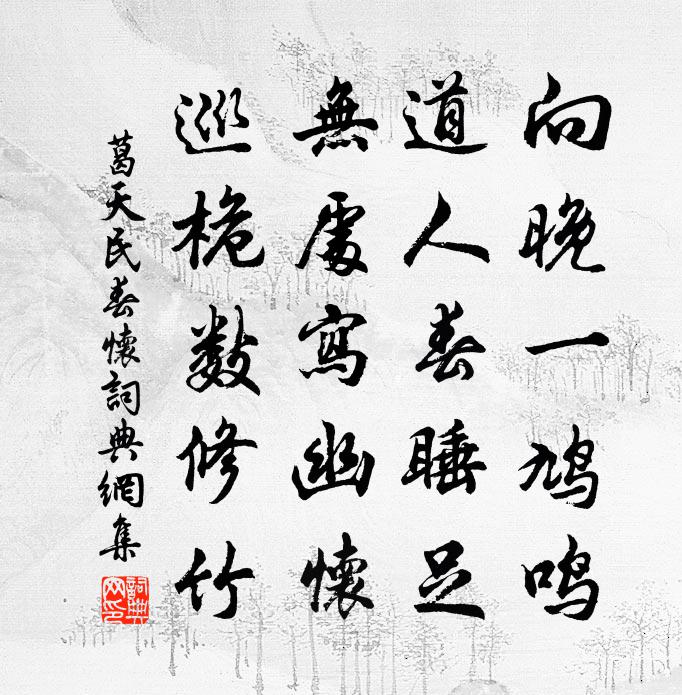 向晚一鳩鳴
道人春睡足
無處寫幽懷
巡檐數修竹
葛天民春懷詞典網集
詞典網印